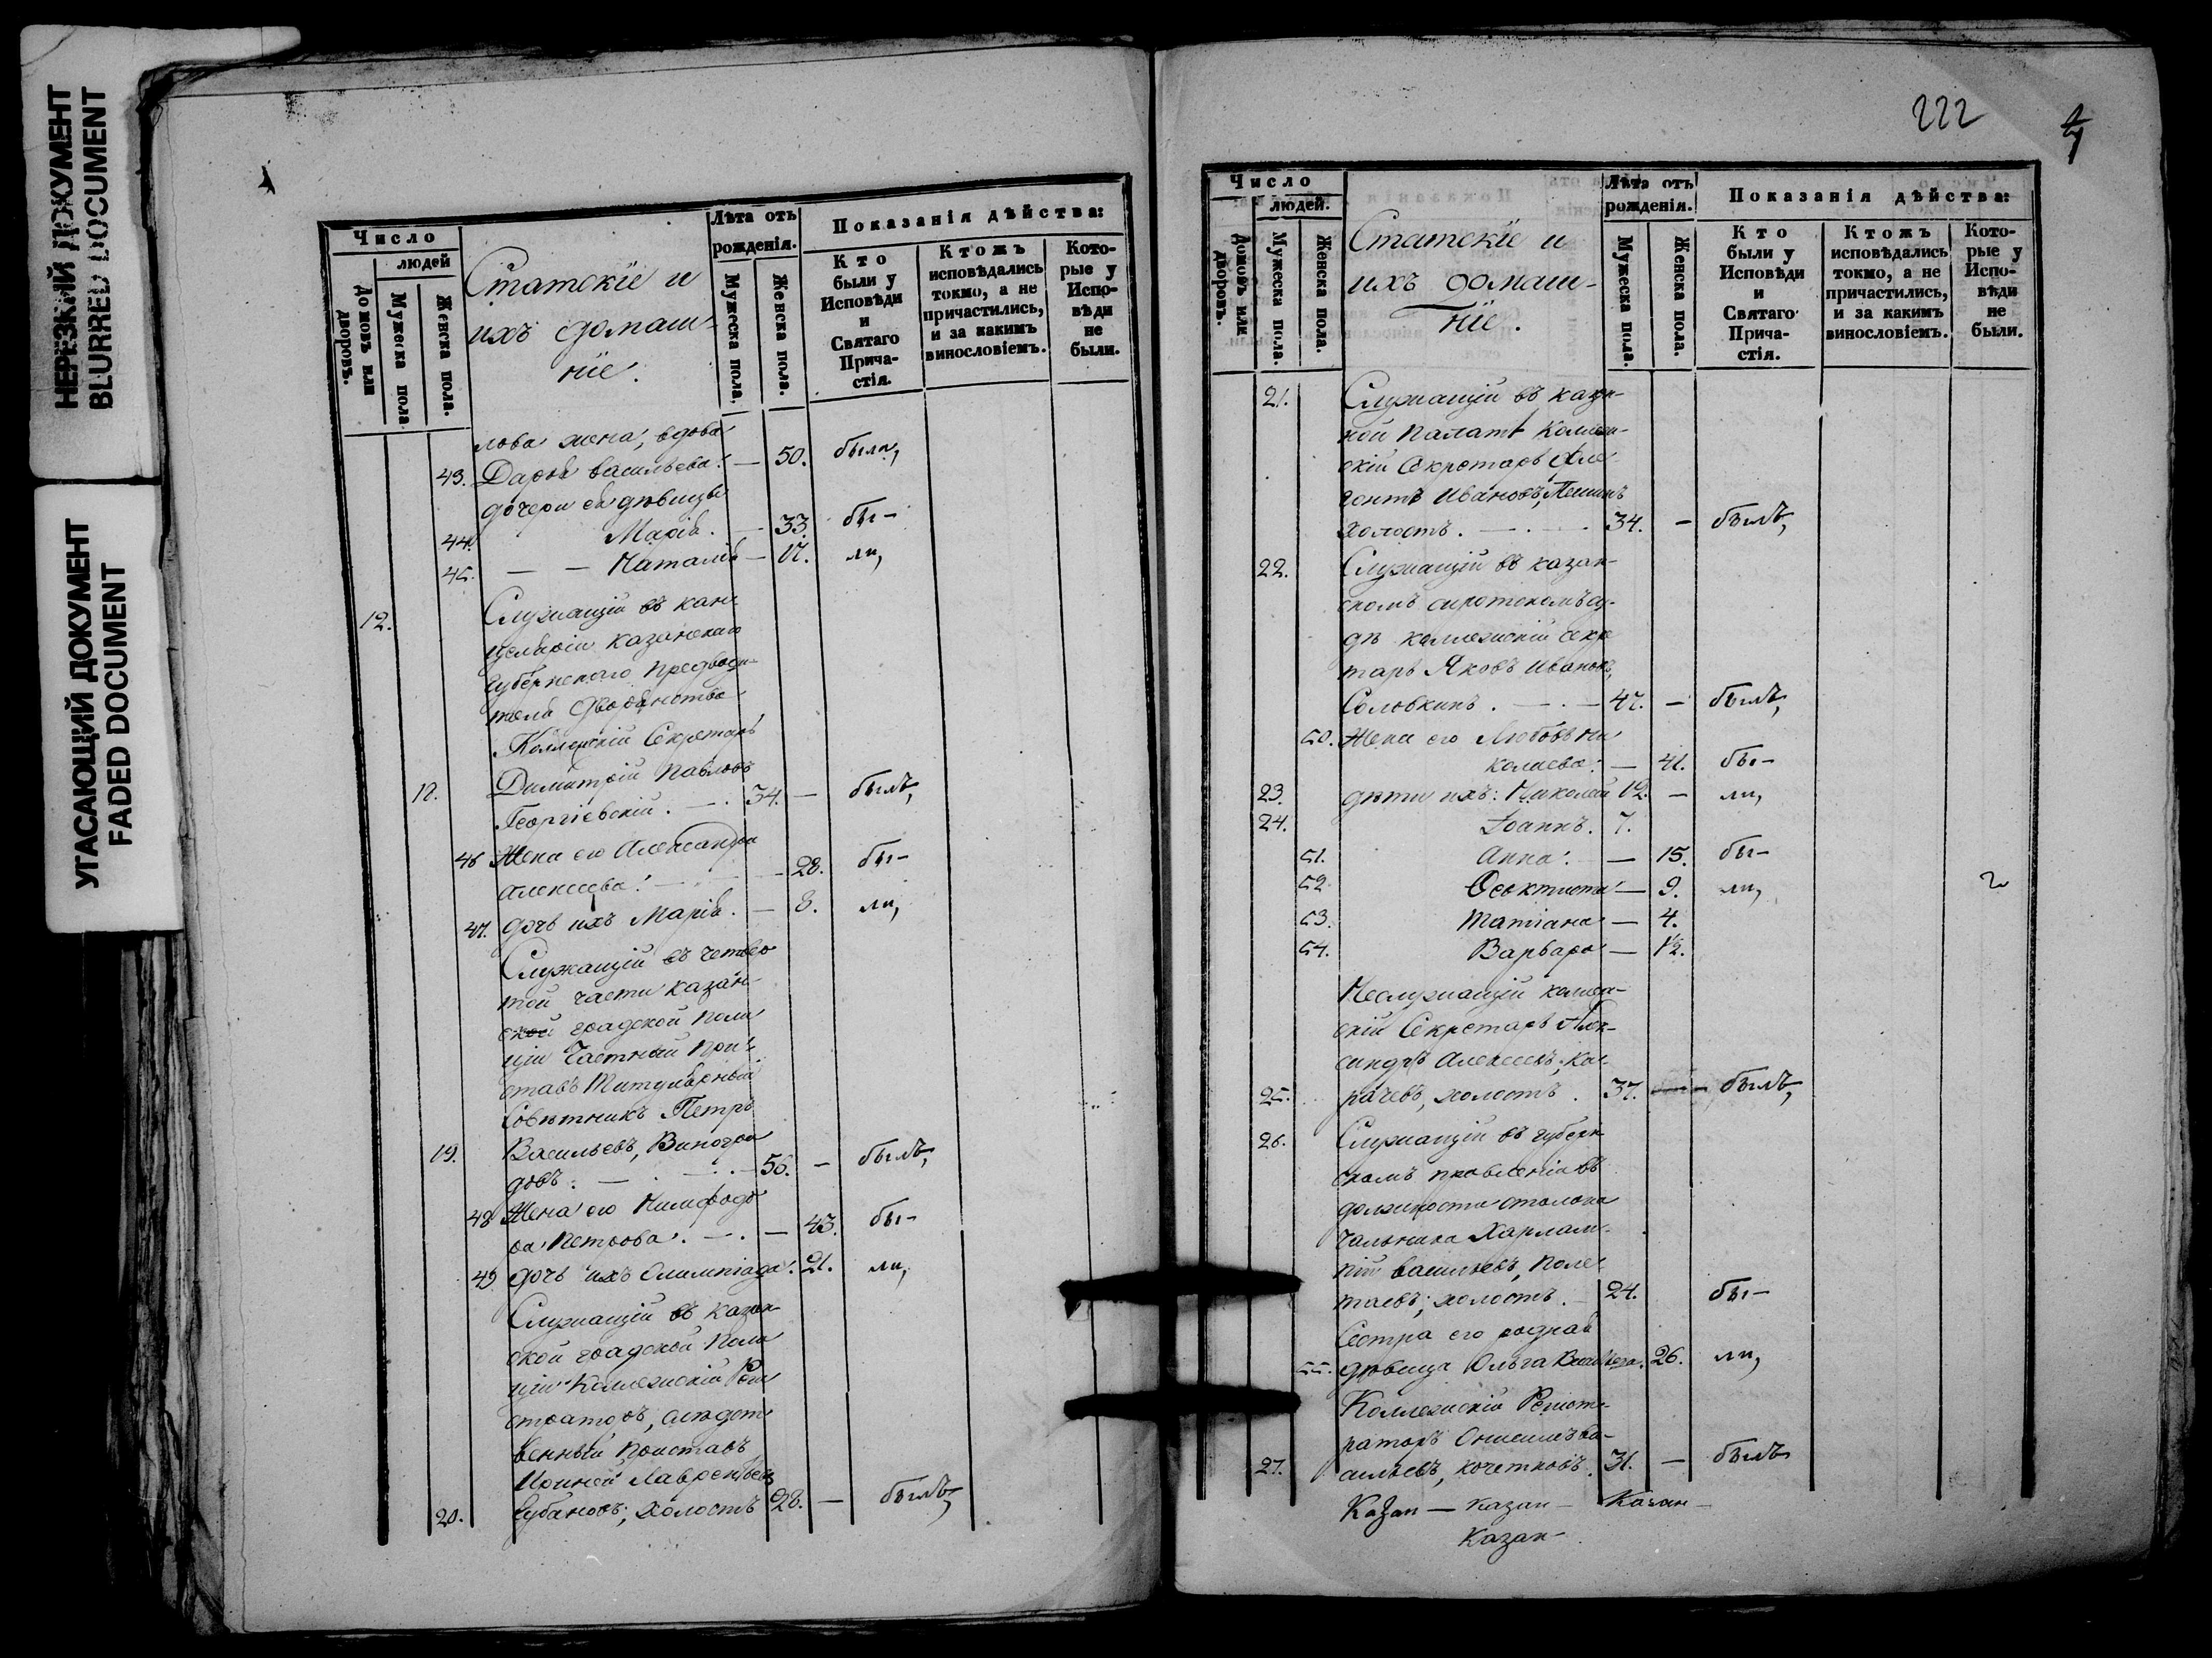 НЕРЕЗКИЙ ДОКУМЕНТ
BLURRED DOCUMENT
УГАСАЮЩИЙ ДОКУМЕНТ
FADED DOCUMENT
Число
людей
Домовъ или дворовъ.
Мужеска пола
Женска пола.
Статскіе и
ихъ домаш-
ніе.
Лѣта отъ рожденія.
Мужеска пола.
Женска пола.
Показанія дѣйства:
Кто были у Исповѣди и Святаго Прича-стія.
Ктожъ исповѣдались токмо, а не причастились, и за какимъ винословіемъ.
Кото-рые у Испо-вѣди не были.
лова жена, вдова
43. Дарья Васильева. — 50. была,
дочери ея дѣвицы
44. Марія. — 33. бы-
45. — — Наталія — 17. ли,
12. Служащій въ кан-
целяріи Казанскаго
Губернскаго Предводи-
теля Дворянства
Коллежскій Секретарь
Димитрій Павловъ
Георгіевскій. — 34. — былъ,
46 Жена его Александра
Алексеева. — 28. бы-
47. дочь ихъ Марія. — 8. ли,
Служащій въ четвер
той части казан-
ской градской поли
ціи Частный При-
ставъ Титулярный
Совѣтникъ Петръ
19. Васильевъ, Виногра
довъ. — 56. — былъ,
48 Жена его Нимфодо
ра Петрова. — 43. бы-
49 дочь ихъ Олимпіада. 21. ли,
Служащій въ казан-
ской градской Поли
ціи Коллежскій Реги
страторъ, слѣдст
венный приставъ
Лаврентьевъ
20. холостъ 28. — былъ,
222
Число
людей.
Домовъ или дворовъ.
Мужеска пола.
Женска пола.
Статскіе и
ихъ домаш-
ніе.
Лѣта отъ рожденія.
Мужеска пола.
Женска пола.
Показанія дѣйства:
Кто были у Исповѣди и Святаго Прича-стія.
Ктожъ исповѣдались токмо, а не причастились, и за какимъ винословіемъ.
Кото-рые у Испо-вѣди не были.
21. Служащій въ казен-
ной Палатѣ Коллеж-
скій Секретарь
Ивановъ,
холостъ. — 34. — былъ,
22. Служащій въ казан-
скомъ сиротскомъ су-
дѣ коллежскій секре
тарь Яковъ Ивановъ,
Соловкинъ. — 47. — былъ,
50. Жена его Любовь Ни
колаева. — 41. бы-
23. дѣти ихъ: Николай 12. — ли,
24. Іоаннъ. 7.
51. Анна. — 15. бы-
52 Ѳеоктиста — 9. ли,
53. Татіана — 4.
54. Варвара — 1½.
Неслужащій коллеж-
скій Секретарь Алек-
сандръ Алексеевъ, Ка-
25. рачевъ, холостъ. 37. — былъ,
26. Служащій въ губерн
скомъ правленіи въ
должности столона
чальника Харлам-
пій Васильевъ, Поле
таевъ; холостъ. — 24. бы-
Сестра его родная
55. дѣвица Ольга Васильева. 26. ли,
Коллежскій Регист-
раторъ Онисимъ Ва-
27. сильевъ, Кочетковъ. 31. — былъ
Казан — Казан — Казан —
Казан-